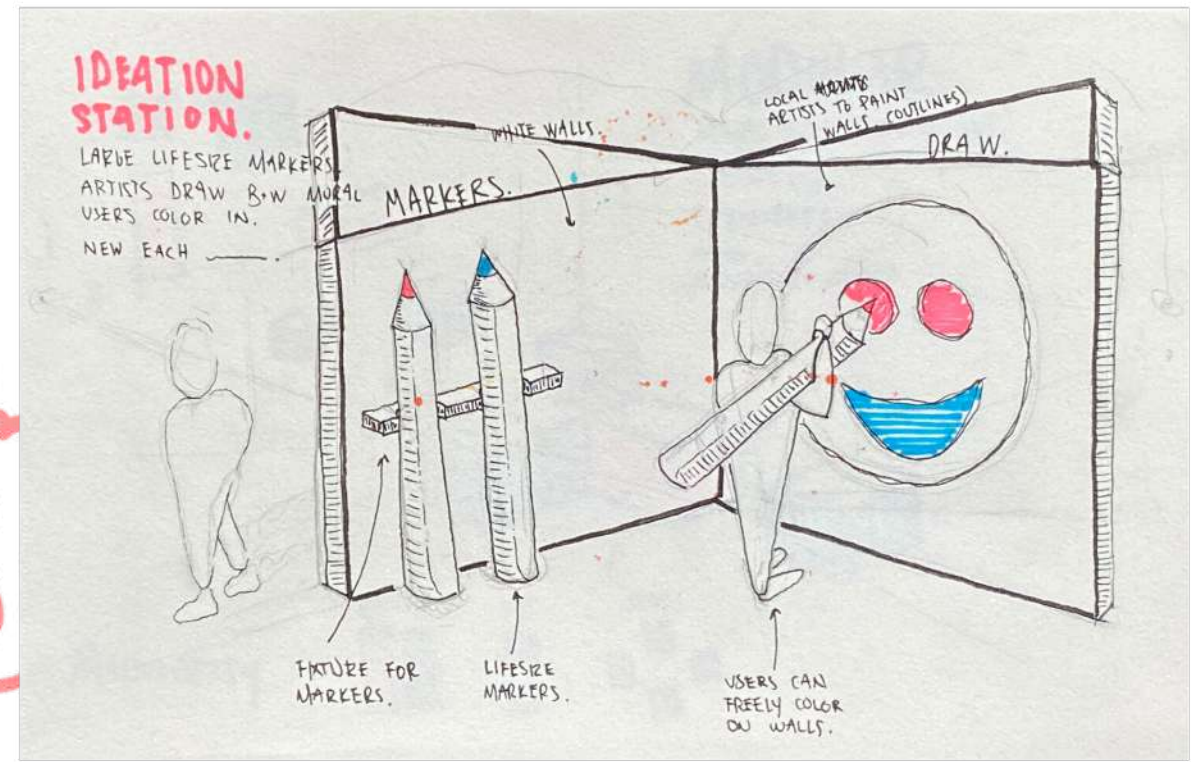 IDEATION
STATION.
LARGE LIFESIZE MARKERS
ARTISTS DRAW B+W MURAL
USERS COLOR IN.
NEW EACH ____.
WHITE WALLS.
LOCAL
ARTISTS TO PAINT
WALLS (OUTLINES)
MARKERS.
DRAW.
FIXTURE FOR
MARKERS.
LIFESIZE
MARKERS.
USERS CAN
FREELY COLOR
ON WALLS.